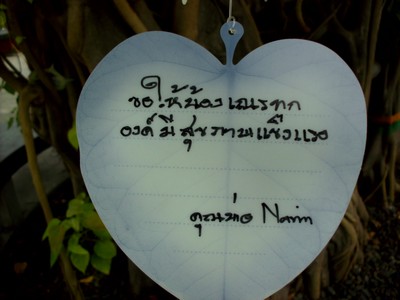 ขอให้น้องเณรทุก
องค์มีสุขภาพแข็งแรง
คุณพ่อ Narin